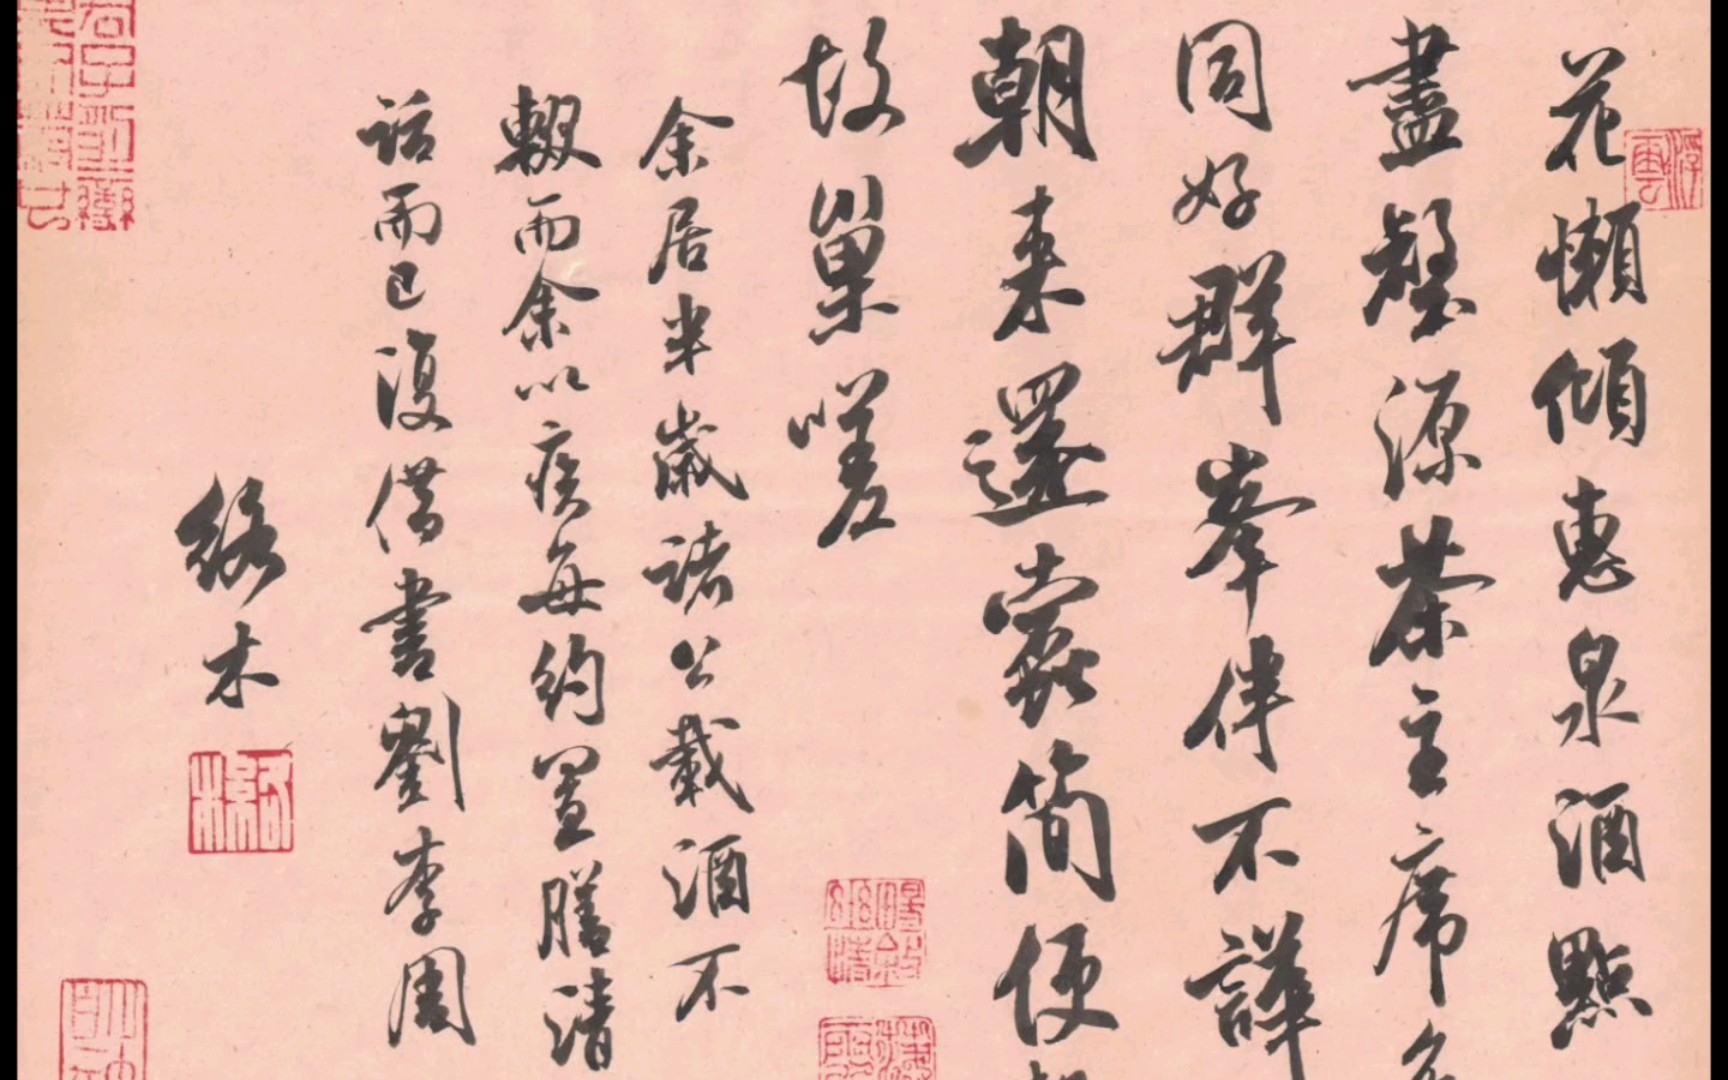 花懶傾惠泉酒點
盡壑源茶主席
同好群峯伴不譁
朝來還蠹簡便
故巢嗟
余居半歲諸公載酒不
輟而余以疾每約置膳清
話而已復借書劉李周
絡木